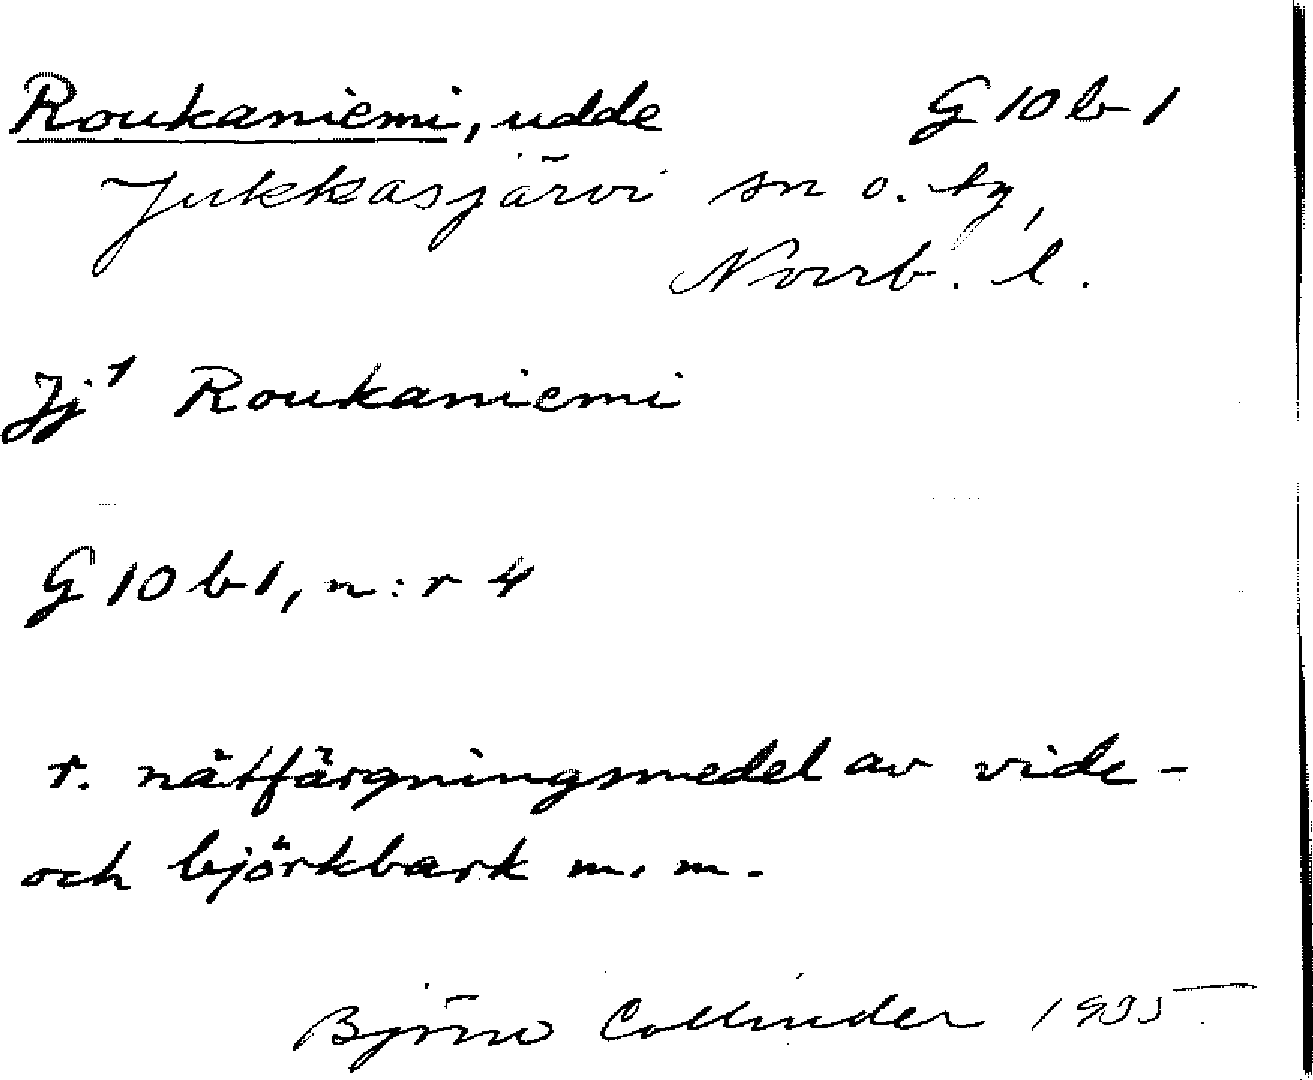 Roukaniemi, udde G 10 b 1
Jukkasjärvi sn o. tg,
Norrb. l.
Jj¹ Roukaniemi
G 10 b 1, n:r 4
r. nätfärgningsmedel av vide-
och björkbark m. m.
Björn Collinder 1935